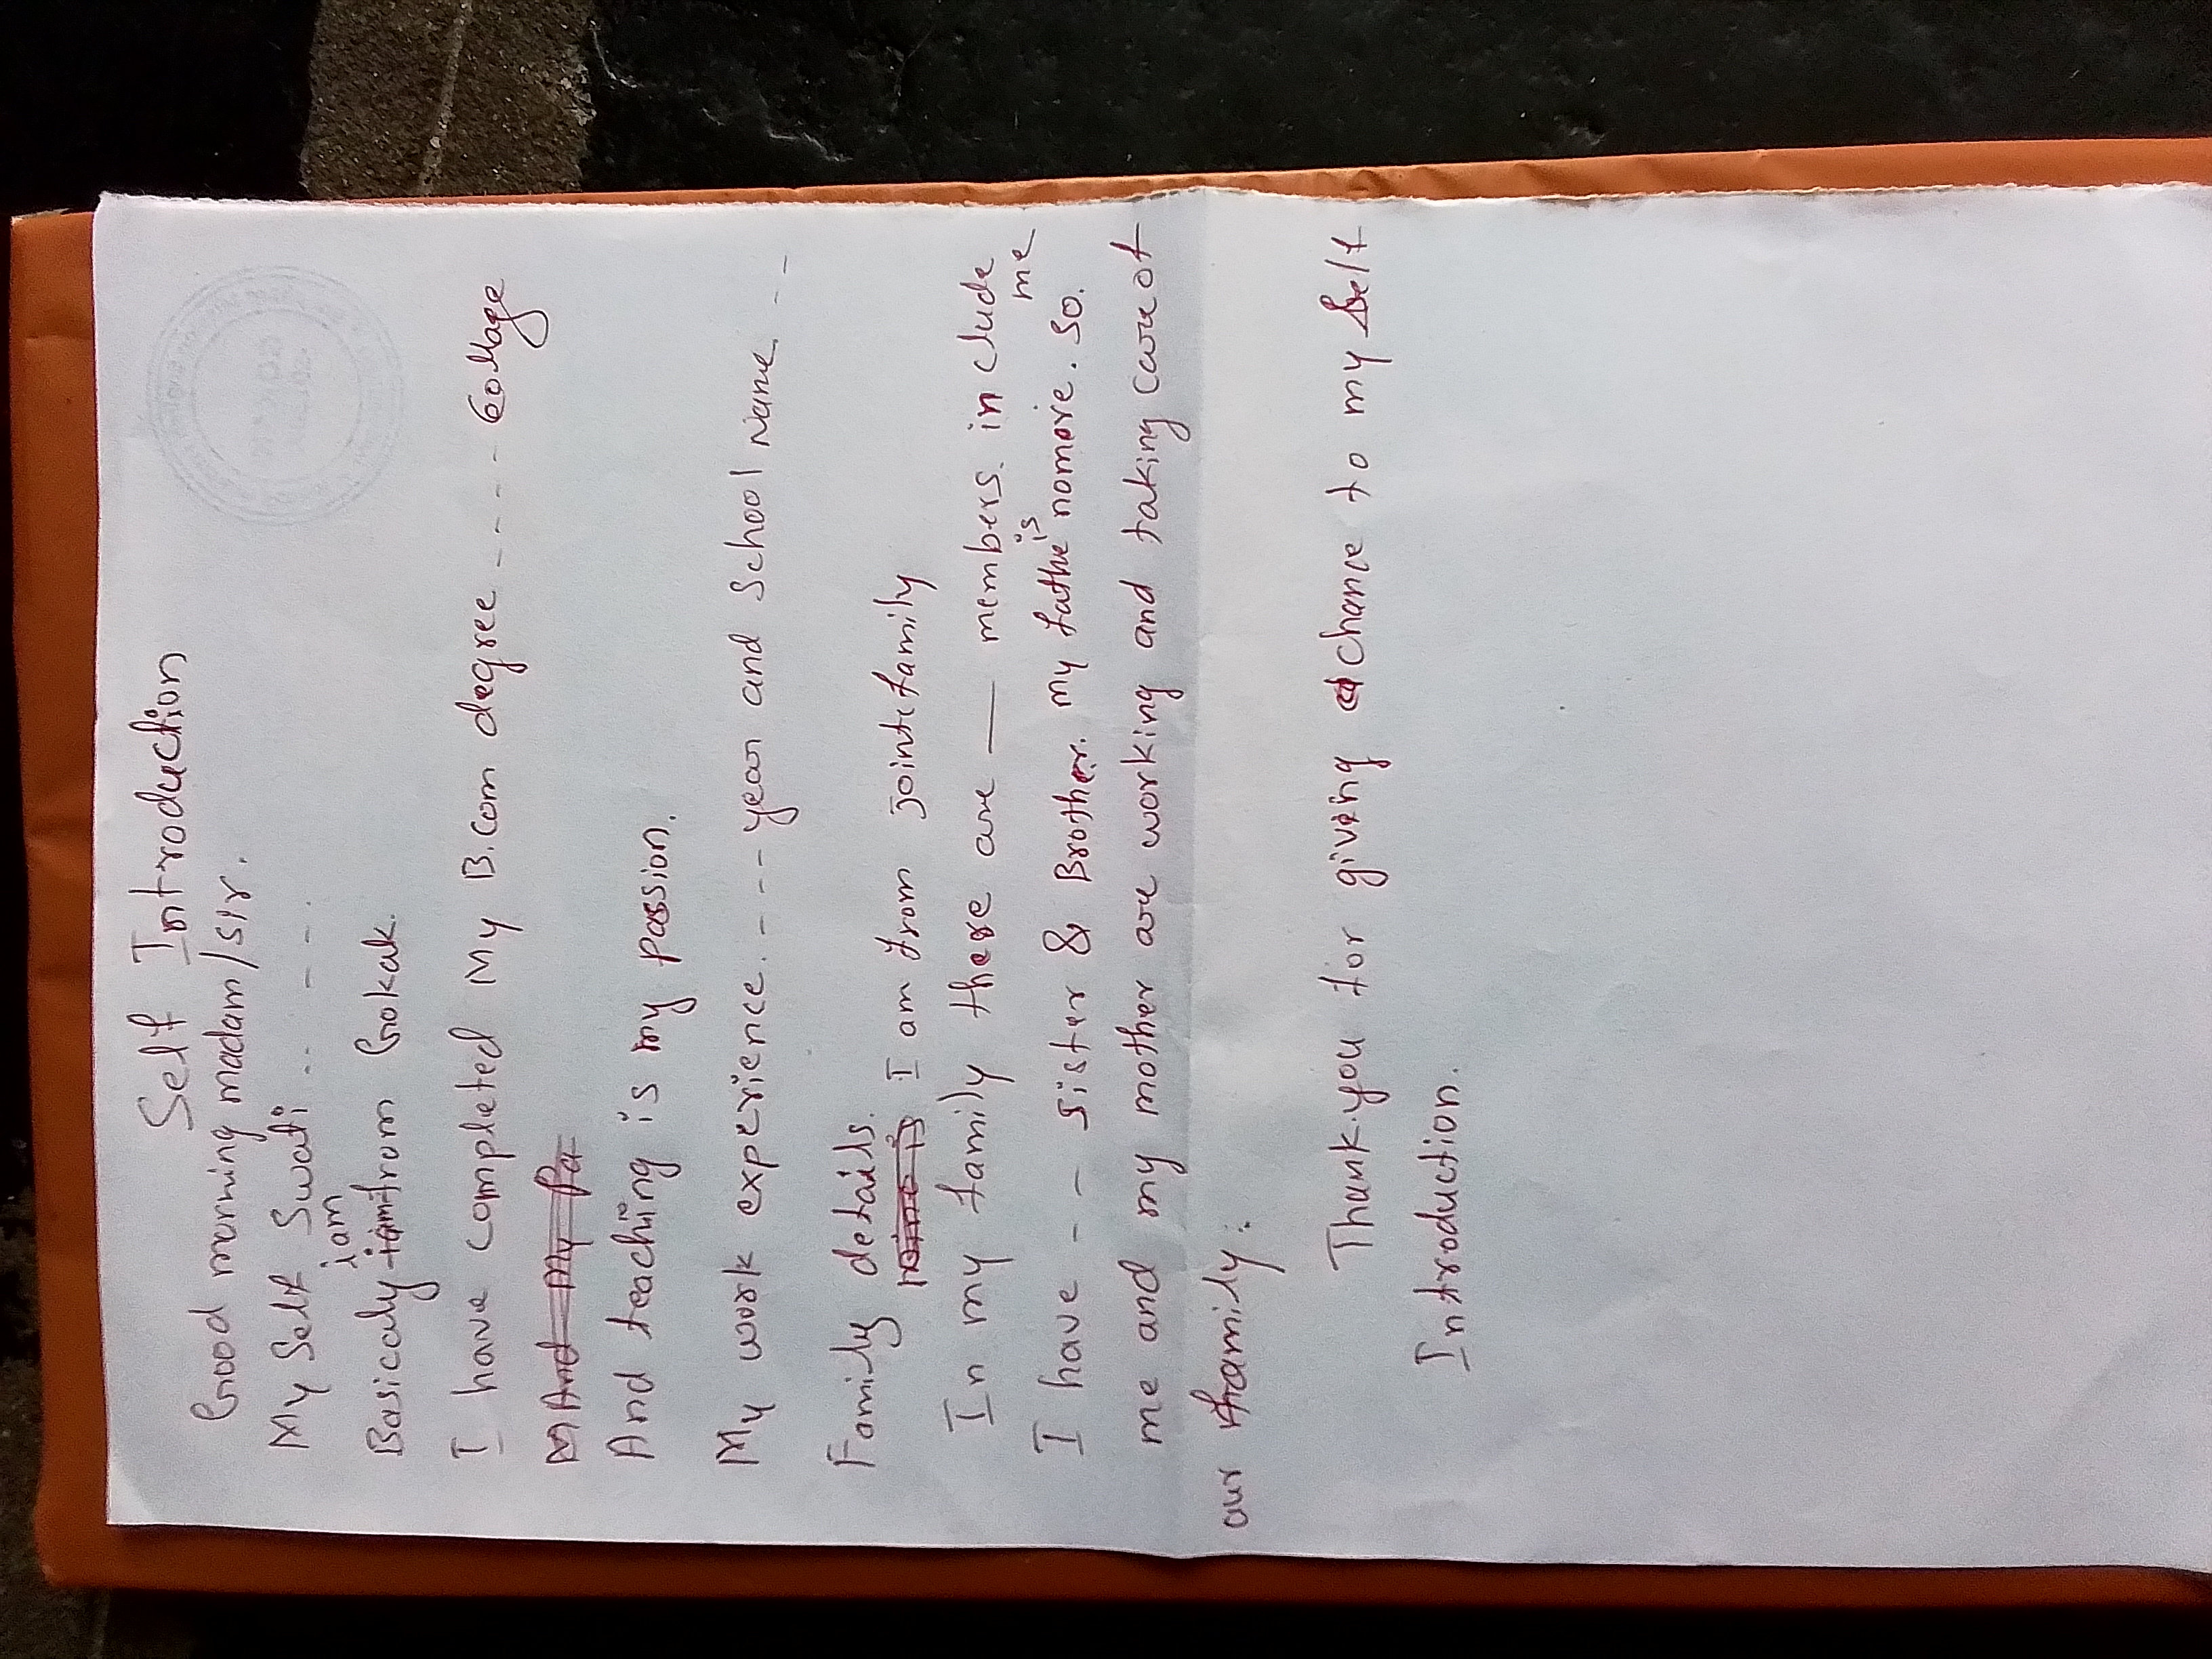 Self Introduction
Good morning madam/sir.
My Self Swati ... - - -.
Basicaly iam from Gokak.
I have completed My B.Com degree - - - - Collage
And My Pa
And teaching is my passion.
My work experience. - - - year and School Name - -
Family details.
I am from jointe family
In my family there are — members. in clude me
I have - - - sister & Brother. my fathe is nomore. so.
me and my mother are working and taking care of
our family.
Thank you for giving chance to my Self
Introduction.